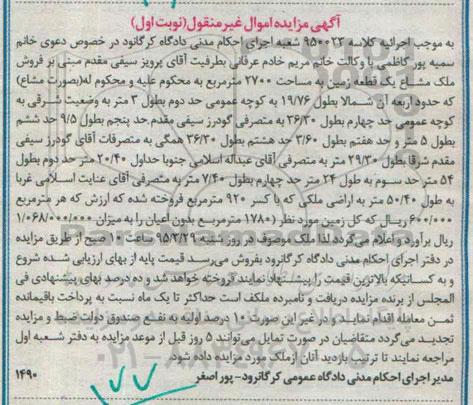 آگهی مزایده اموال غیر منقول (نوبت اول)
به موجب اجرائیه کلاسه ۹۵۰۰۲۳ شعبه اجرای احکام مدنی دادگاه کرگانرود در خصوص دعوی خانم
سمیه پور کاظمی با وکالت خانم مریم خادم عرفانی بطرفیت آقای پرویز سیفی مقدم مبنی بر فروش
ملک مشاع یک قطعه زمین به مساحت ۲۷۰۰ مترمربع به محکوم علیه و محکوم له(بصورت مشاع)
که حدود اربعه آن شمالا بطول ۱۹/۷۶ به کوچه عمومی حد دوم بطول ۳ متر به وضعیت شرقی به
کوچه عمومی حد چهارم بطول ۲۶/۳۰ به متصرفی گودرز سیفی مقدم حد پنجم بطول ۹/۵ حد ششم
بطول ۵ متر و حد هفتم بطول ۳/۶۰ حد هشتم بطول ۳۶/۳۰ همگی به متصرفات آقای گودرز سیفی
مقدم شرقا بطول ۲۹/۳۰ متر به متصرفی آقای عبداله اسلامی جنوبا حداول ۲۰/۴۰ متر حد دوم بطول
۵۴ متر حد سوم به طول ۲۴ متر حد چهارم بطول ۷/۴۰ متر به متصرفی آقای عنایت اسلامی غربا
به طول ۵۰/۴۰ متر به اراضی ملکی که با کسر ۹۲۰ مترمربع فروخته شده که ارزش که هر مترمربع
۶۰۰/۰۰۰ ریال که کل زمین مورد نظر (۱۷۸۰ مترمربع بدون اعیان را به میزان ۱/۰۶۸/۰۰۰/۰۰۰
ریال برآورد و اعلام می‌گردد لذا ملک موصوف در روز شنبه ۹۵/۳/۲۹ ساعت ۱۰ صبح از طریق مزایده
در دفتر اجرای احکام مدنی دادگاه کرگانرود بفروش می‌رسد قیمت پایه از بهای ارزیابی شده شروع
و به کسانیکه بالاترین قیمت را پیشنهاد نمایند فروخته خواهد شد و ده درصد بهای پیشنهادی فی
المجلس از برنده مزایده دریافت و نامبرده مکلف است حداکثر تا یک ماه نسبت به پرداخت باقیمانده
ثمن معامله اقدام نماید و در غیر این صورت ۱۰ درصد اولیه به نفع صندوق دولت ضبط و مزایده
تجدید می‌گردد متقاضیان در صورت تمایل می‌توانند ۵ روز قبل از موعد مزایده به دفتر شعبه اول
مراجعه نمایند تا ترتیب بازدید آنان از ملک مورد مزایده داده شود.
مدیر اجرای احکام مدنی دادگاه عمومی کرگانرود – پور اصغر ۱۴۹۰